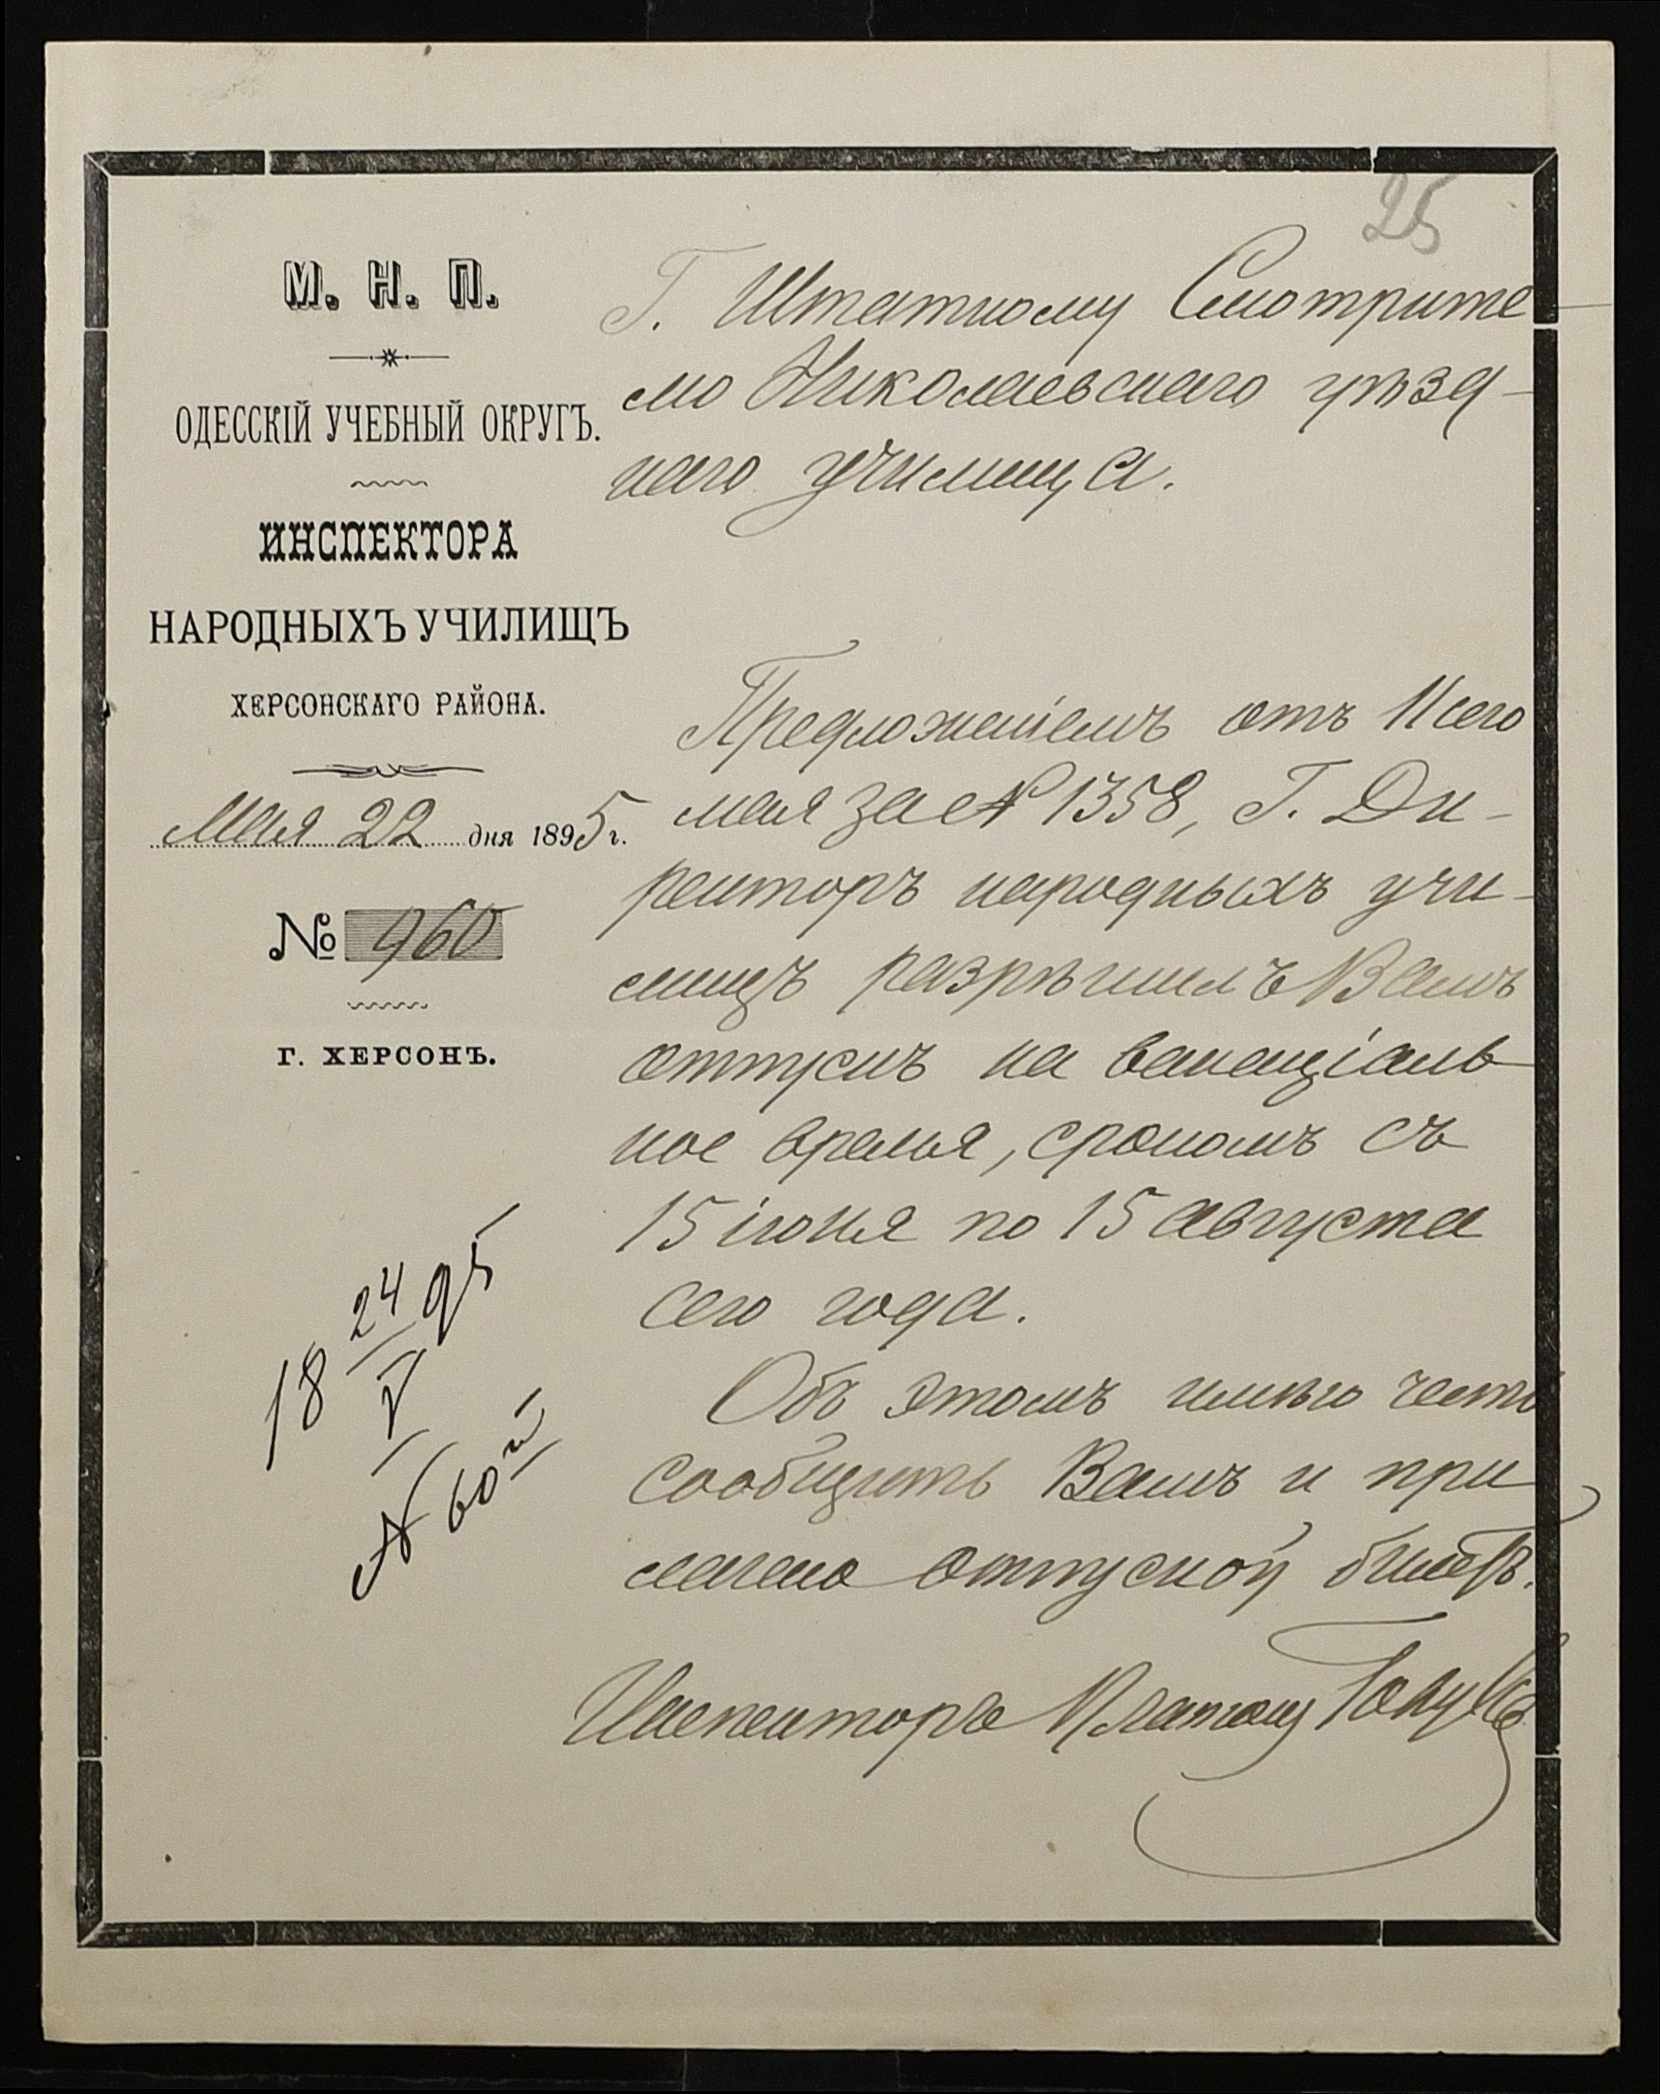 25
М. Н. П.
ОДЕССКІЙ УЧЕБНЫЙ ОКРУГЪ.
ИНСПЕКТОРА
НАРОДНЫХЪ УЧИЛИЩЪ
ХЕРСОНСКАГО РАЙОНА.
Мая 22 дня 1895 г.
№ 960
Г. ХЕРСОНЪ.
18 24/V 95
№ 60й
Г. Штатному Смотрите-
лю Николаевскаго уѣзд-
наго училища.
Предложеніемъ отъ 11 сего
мая за № 1358, Г. Ди-
ректоръ народныхъ учи-
лищъ разрѣшилъ Вамъ
отпускъ на вакаціаль-
ное время, срокомъ съ
15 іюня по 15 августа
сего года.
Объ этомъ имѣю честь
сообщить Вамъ и при
лагаю отпускной билетъ.
Инспекторъ Платонъ